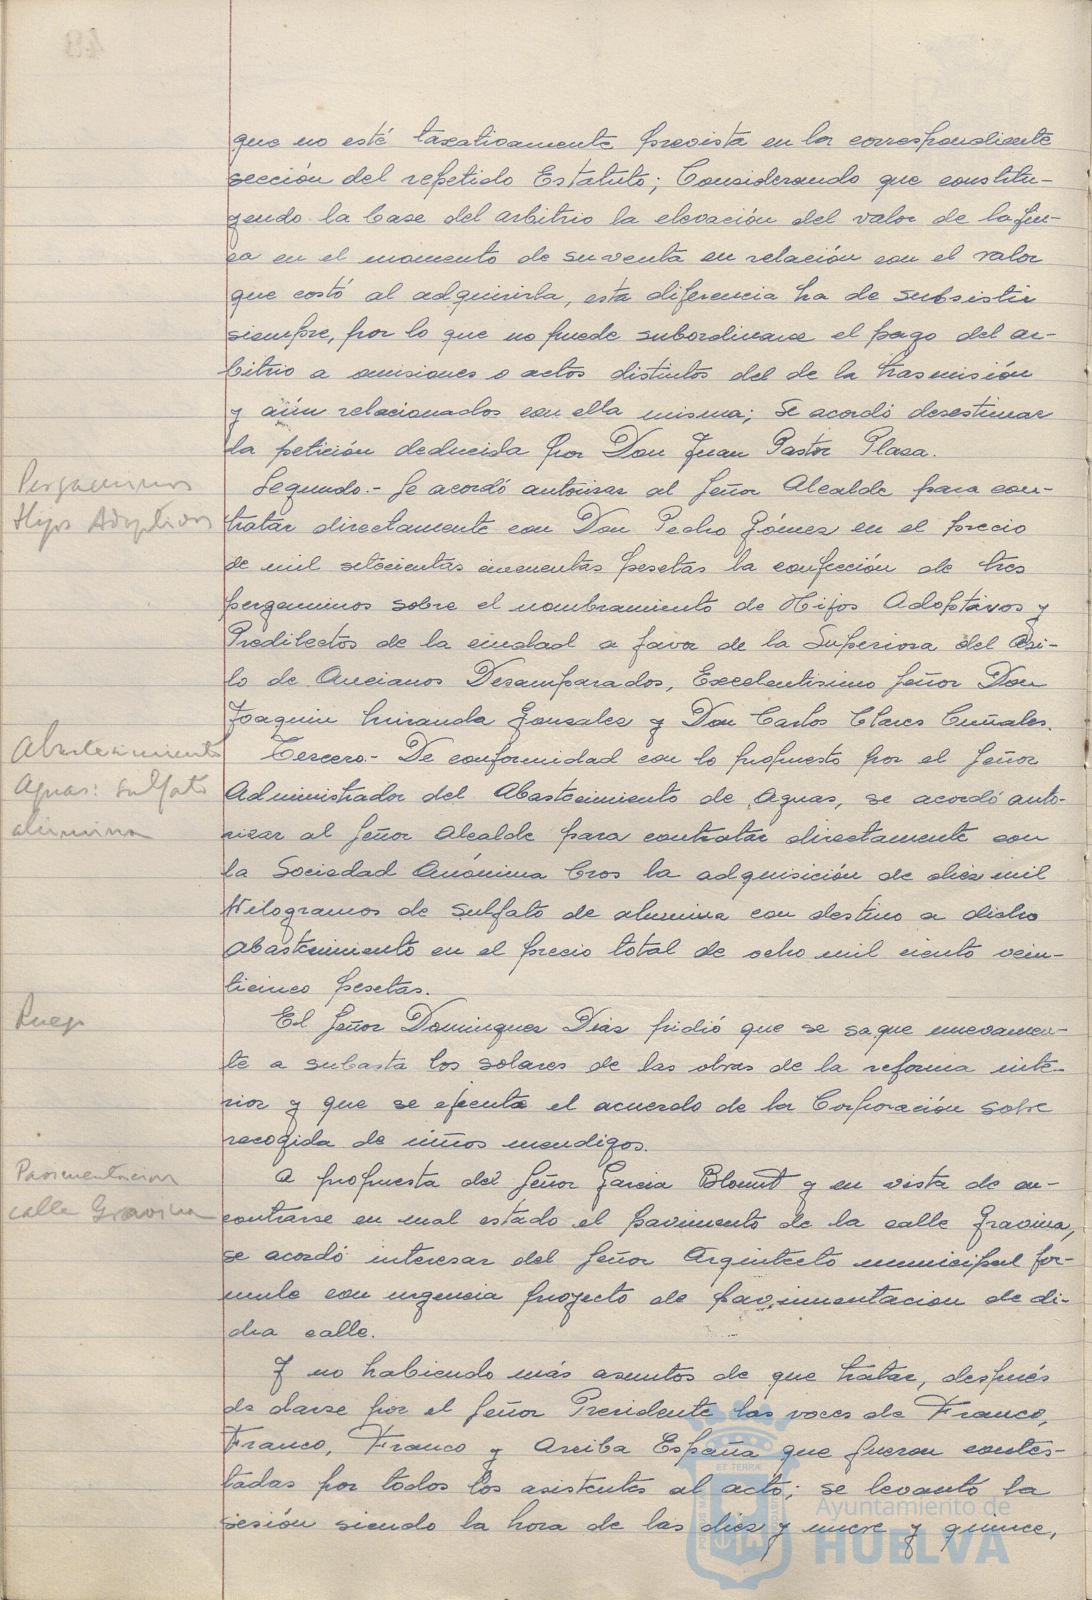 que no esté taxativamente prevista en la correspondiente
sección del repetido Estatuto; Considerando que constitu-
yendo la base del arbitrio la elevación del valor de la fin-
ca en el momento de su venta en relación con el valor
que costó al adquirirla, esta diferencia ha de subsistir
siempre, por lo que no puede subordinarse el pago del ar-
bitrio a omisiones o actos distintos del de la trasmisión
y aún relacionados con ella misma; Se acordó desestimar
la petición deducida por Don Juan Pastor Plaza.
Pergaminos
Hijos Adoptivos
Segundo.- Se acordó autorizar al Señor Alcalde para con-
tratar directamente con Don Pedro Gómez en el precio
de mil setecientas cincuentas pesetas la confección de tres
pergaminos sobre el nombramiento de Hijos Adoptivos y
Predilectos de la ciudad a favor de la Superiora del Asi-
lo de Ancianos Desamparados, Excelentisimo Señor Don
Joaquin Miranda Gonzalez y Don Carlos Clares Cuñales.
Abastecimiento
Aguas: Sulfato
alumina
Tercero.- De conformidad con lo propuesto por el Señor
Administrador del Abastecimiento de Aguas, se acordó auto-
rizar al Señor Alcalde para contratar directamente con
la Sociedad Anónima Cros la adquisición de diez mil
Kilogramos de sulfato de alumina con destino a dicho
abastecimiento en el precio total de ocho mil ciento vein-
ticinco pesetas.
Ruego
El Señor Dominguez Diaz pidió que se saque nuevamen-
te a subasta los solares de las obras de la reforma inte-
rior y que se ejecute el acuerdo de la Corporación sobre
recogida de niños mendigos.
Pavimentacion
calle Gravina
A propuesta del Señor Garcia Blount y en vista de en-
contrarse en mal estado el pavimento de la calle Gravina,
se acordó interesar del Señor Arquitecto municipal for-
mule con urgencia proyecto de pavimentacion de di-
cha calle.
Y no habiendo más asuntos de que tratar, después
de darse por el Señor Presidente las voces de Franco,
Franco, Franco y Arriba España que fueron contes-
tadas por todos los asistentes al acto; se levantó la
sesión siendo la hora de las diez y nueve y quince,
Ayuntamiento de
HUELVA